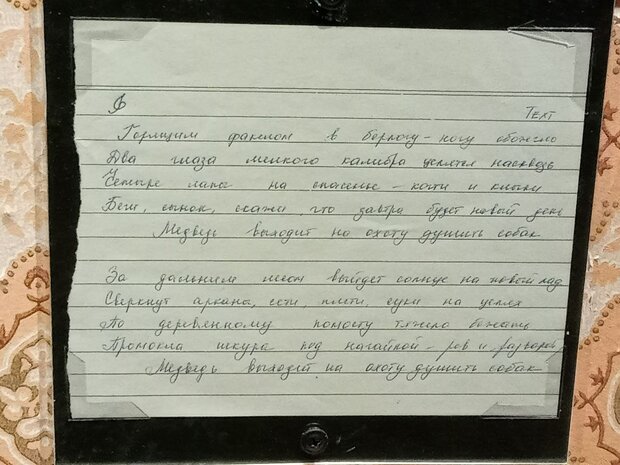 Text
Горящим факелом в берлогу - ногу обожгло
Два глаза мелкого калибра целятся насквозь
Четыре лапы на спасенье - когти и клыки
Беги, сынок, скажи, что завтра будет новый день
Медведь выходит на охоту душить собак
За дальним лесом выйдет солнце на новый лад
Сверкнут арканы, сети, плети, суки на цепях
По деревянному помосту тяжело бежать
Промокла шкура под нагайкой - рёв и
Медведь выходит на охоту душить собак